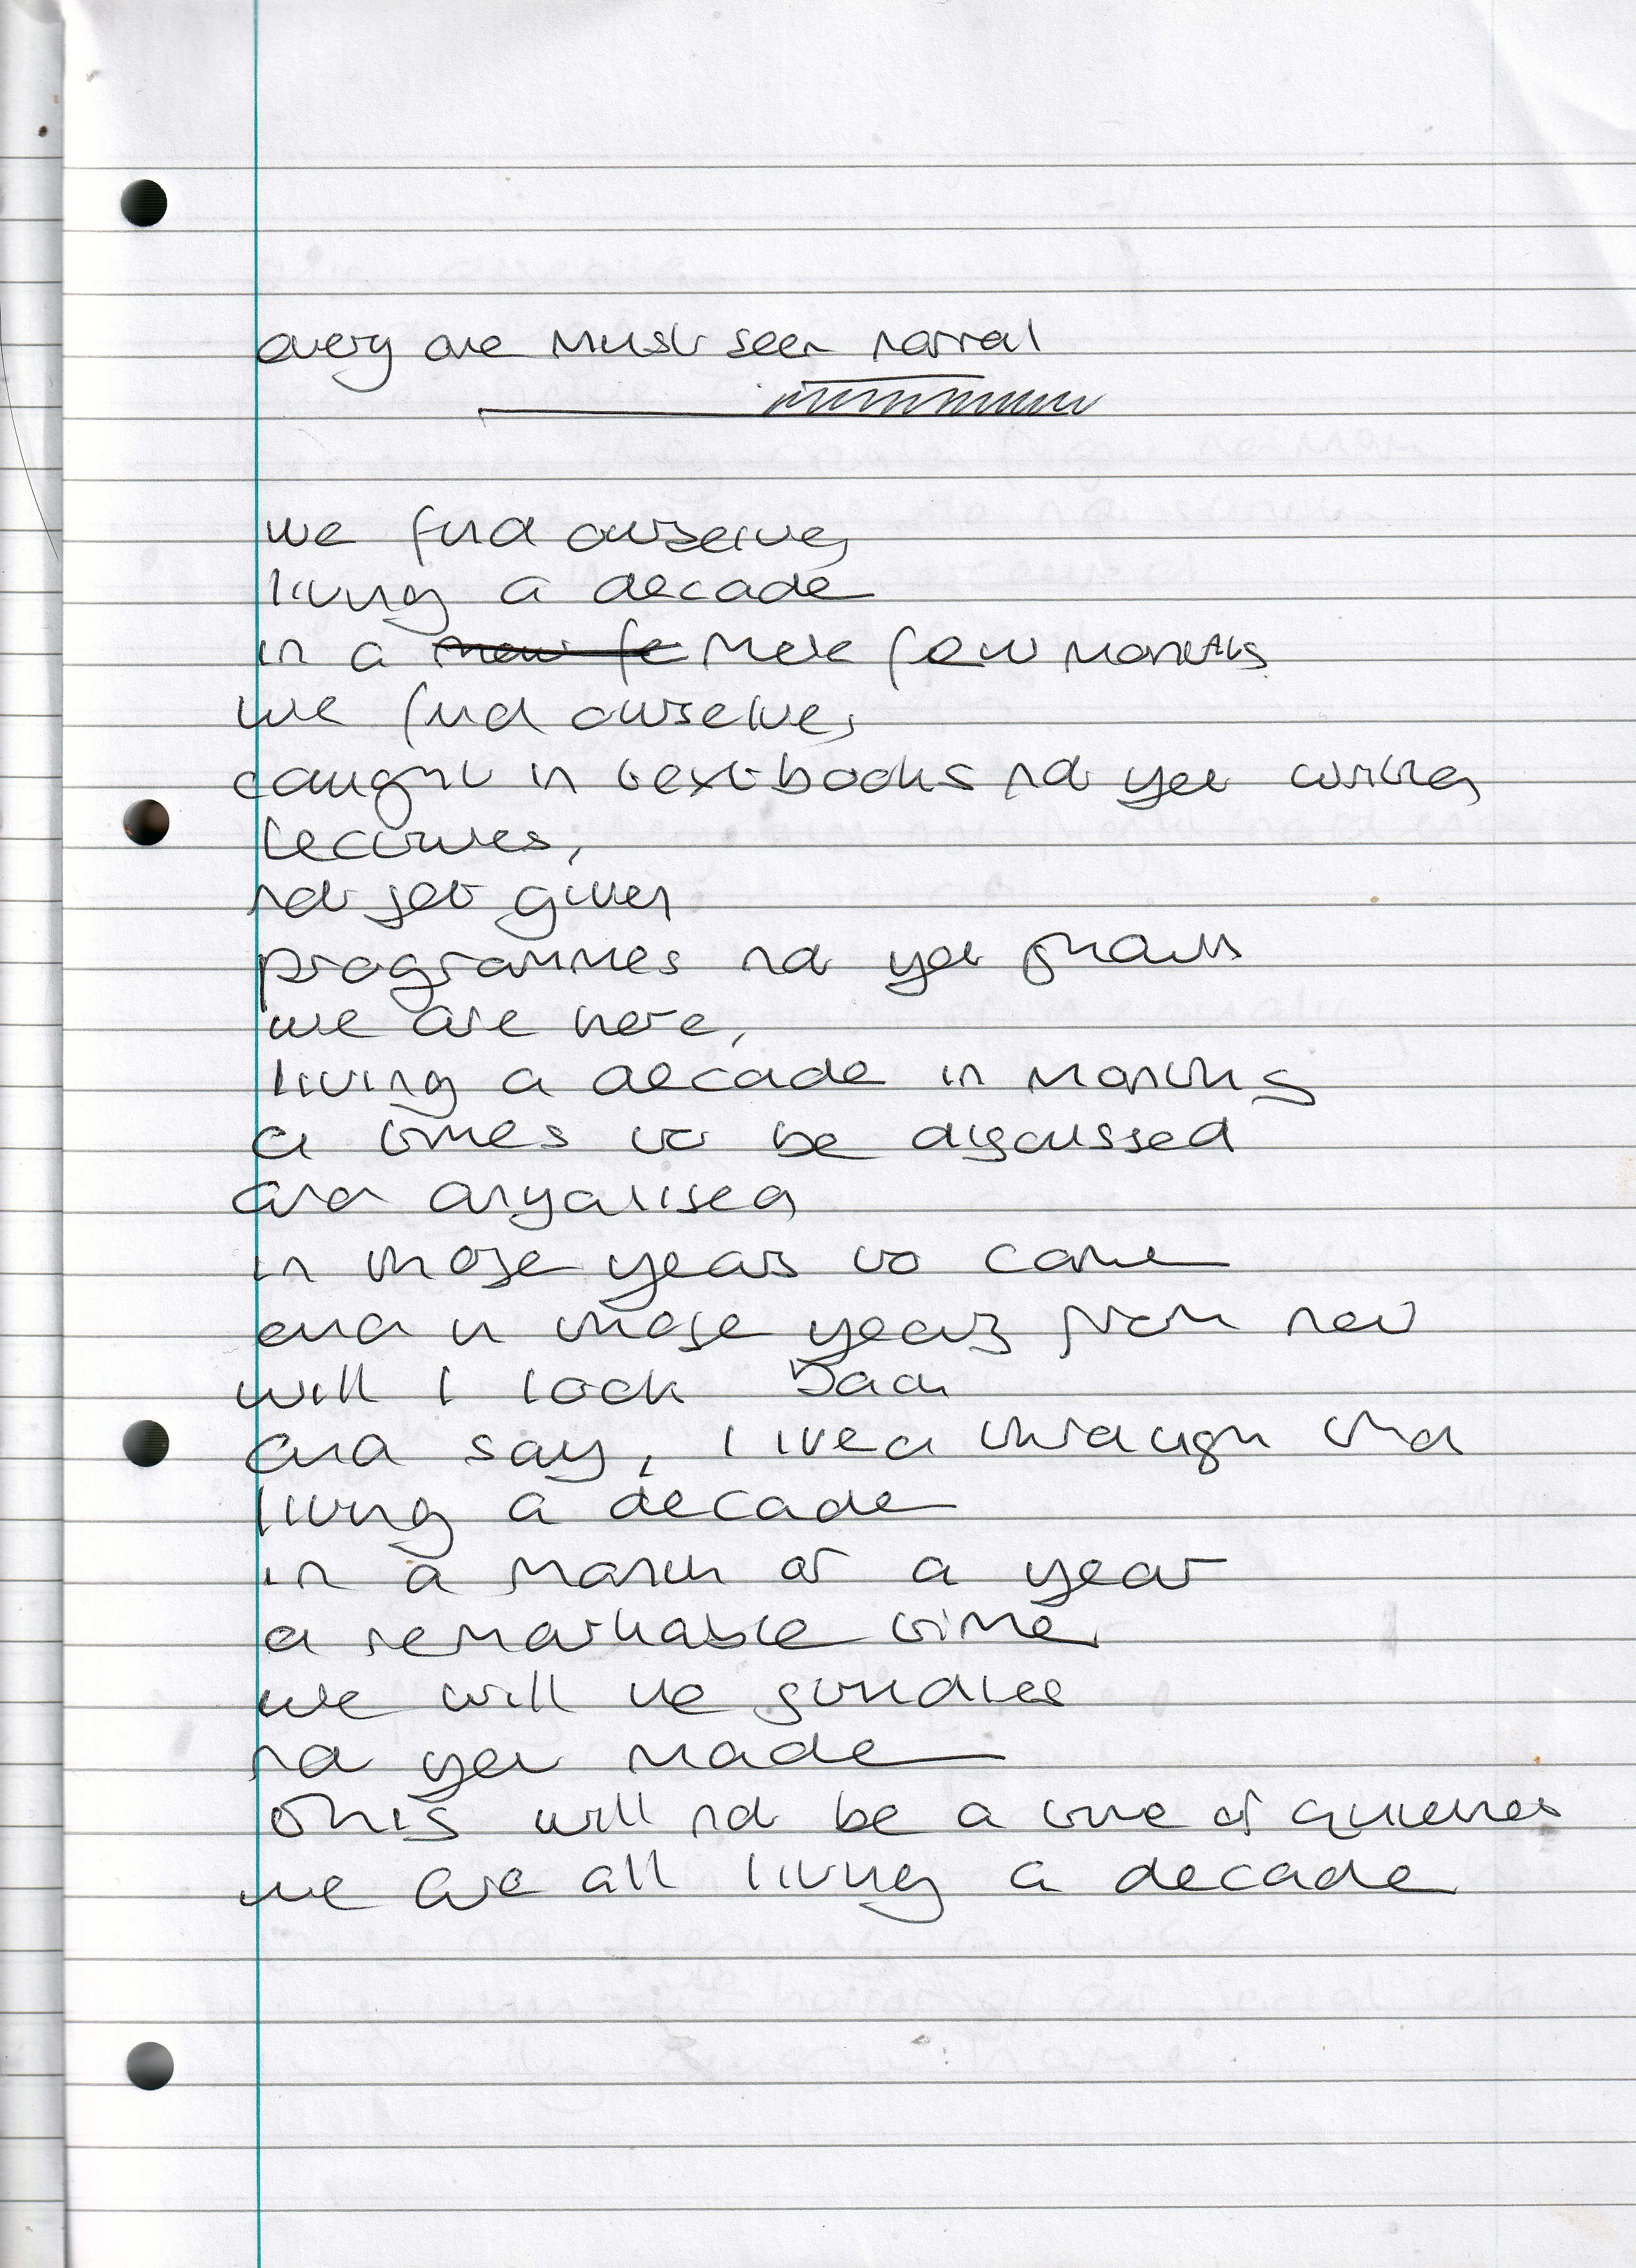 every one must seem normal
we find ourselves
living a decade
in a mere few months
we find ourselves
caught in textbooks not yet written
lectures,
not yet given
programmes not yet shown
we are here,
living a decade in months
a times to be discussed
and anyalised
in those years to come
and in those years from now
will I look back
and say, I lived through that
living a decade
in a month or a year
a remarkable time
we will be studies
not yet made
this will not be a time of quietness
we are all living a decade